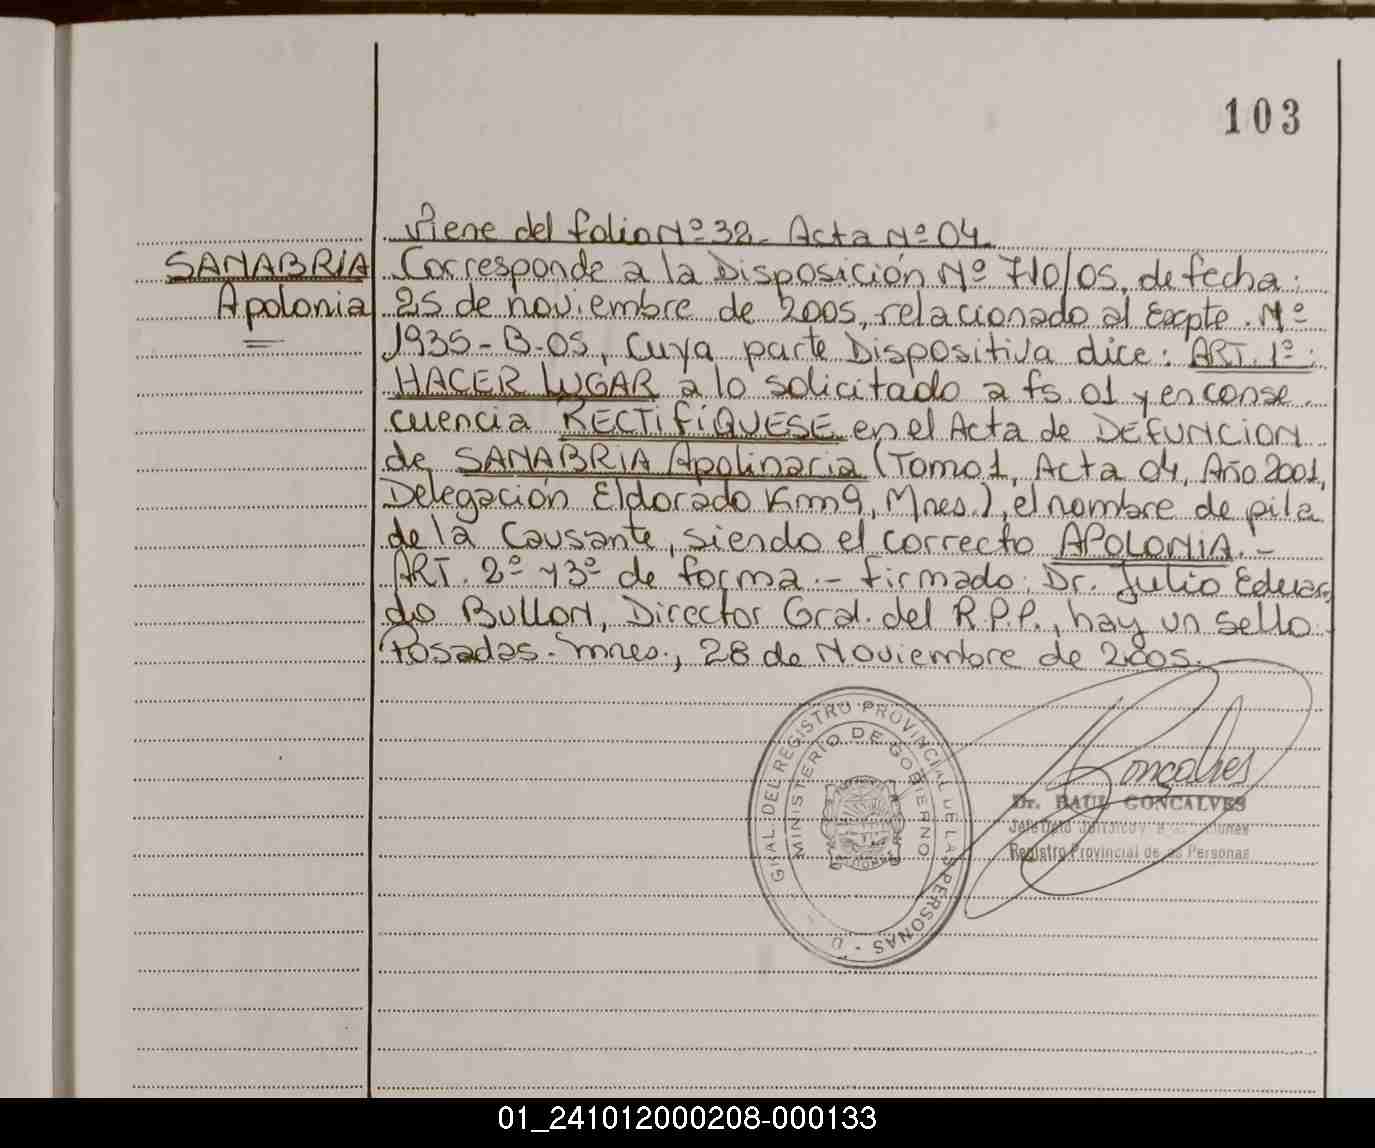 103
Viene del folio Nº 32 - Acta Nº 04
SANABRIA
Apolonia
Corresponde a la Disposición Nº 710/05, de fecha:
25 de noviembre de 2005, relacionado al Expte. Nº
1935-B-05, cuya parte Dispositiva dice: ART. 1º:
HACER LUGAR a lo solicitado a fs. 01 y en conse-
cuencia RECTIFÍQUESE en el Acta de DEFUNCION
de SANABRIA Apolinaria (Tomo 1, Acta 04, Año 2001,
Delegación Eldorado Km 9, Mnes.), el nombre de pila
de la Causante, siendo el correcto APOLONIA.-
ART. 2º y 3º de forma.- Firmado: Dr. Julio Eduar-
do Bullon, Director Gral. del R.P.P., hay un sello.
Posadas - Mnes., 28 de Noviembre de 2005.
GRAL. DEL REGISTRO PROVINCIAL DE LAS PERSONAS - D
MINISTERIO DE GOBIERNO
Goncalves
Dr. RAUL GONCALVES
Registro Provincial de las Personas
01_241012000208-000133